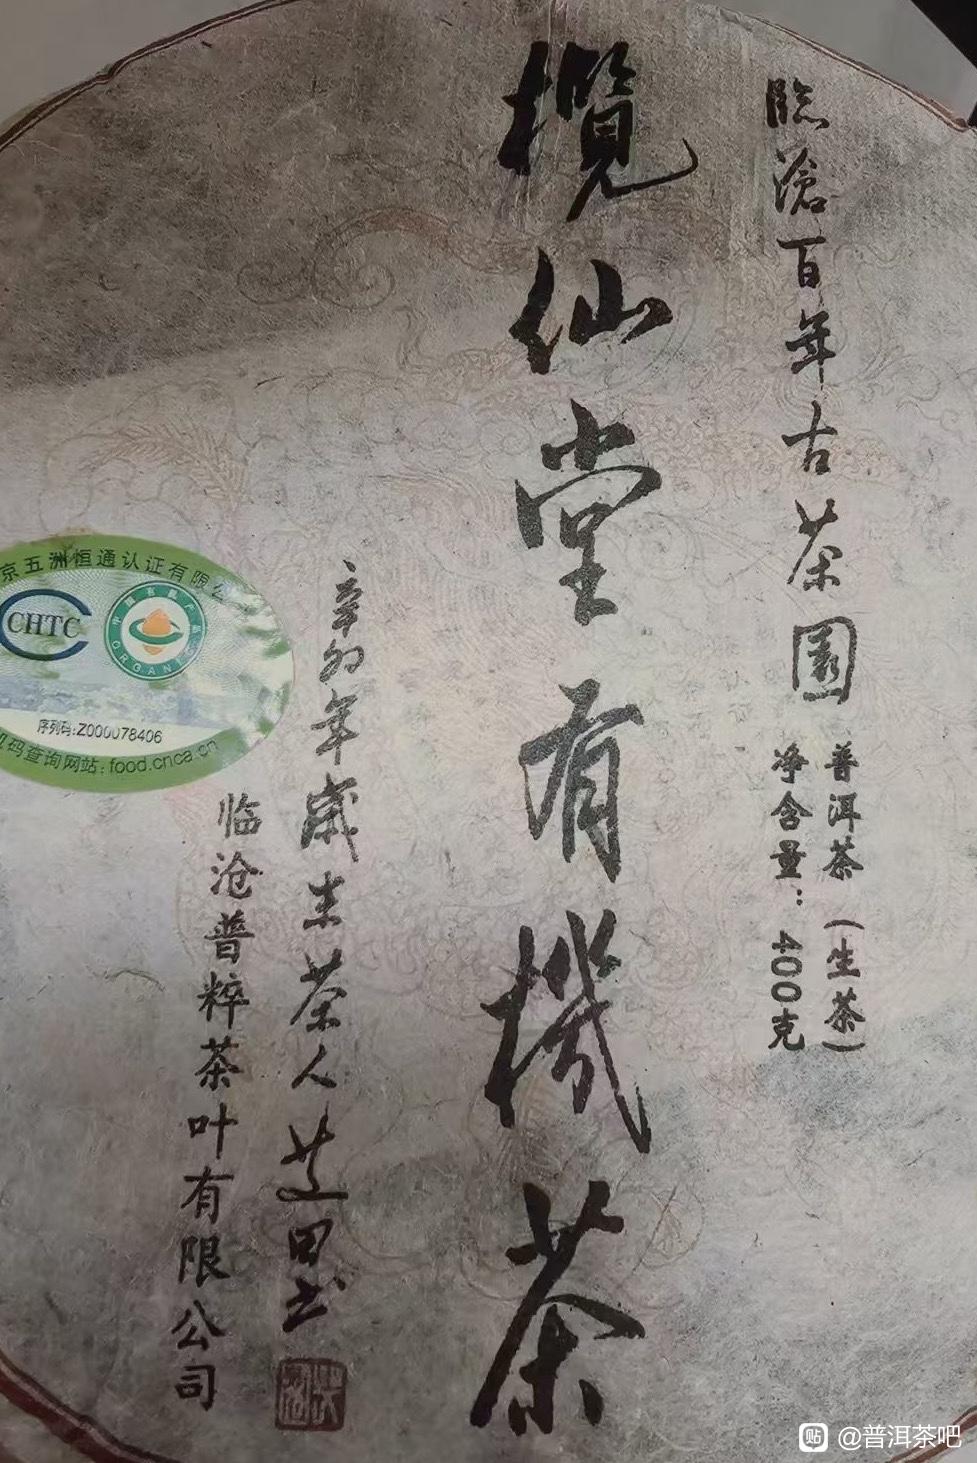 臨滄百年古茶園
普洱茶（生茶）
净含量：400克
欖仙堂有機茶
辛卯年歲末茶人芝田书
临沧普粹茶叶有限公司
京五洲恒通认证有限公
CHTC
中国有机产品
ORGANIC
序列码:Z000078406
码查询网站:food.cnca.cn
贴 @普洱茶吧